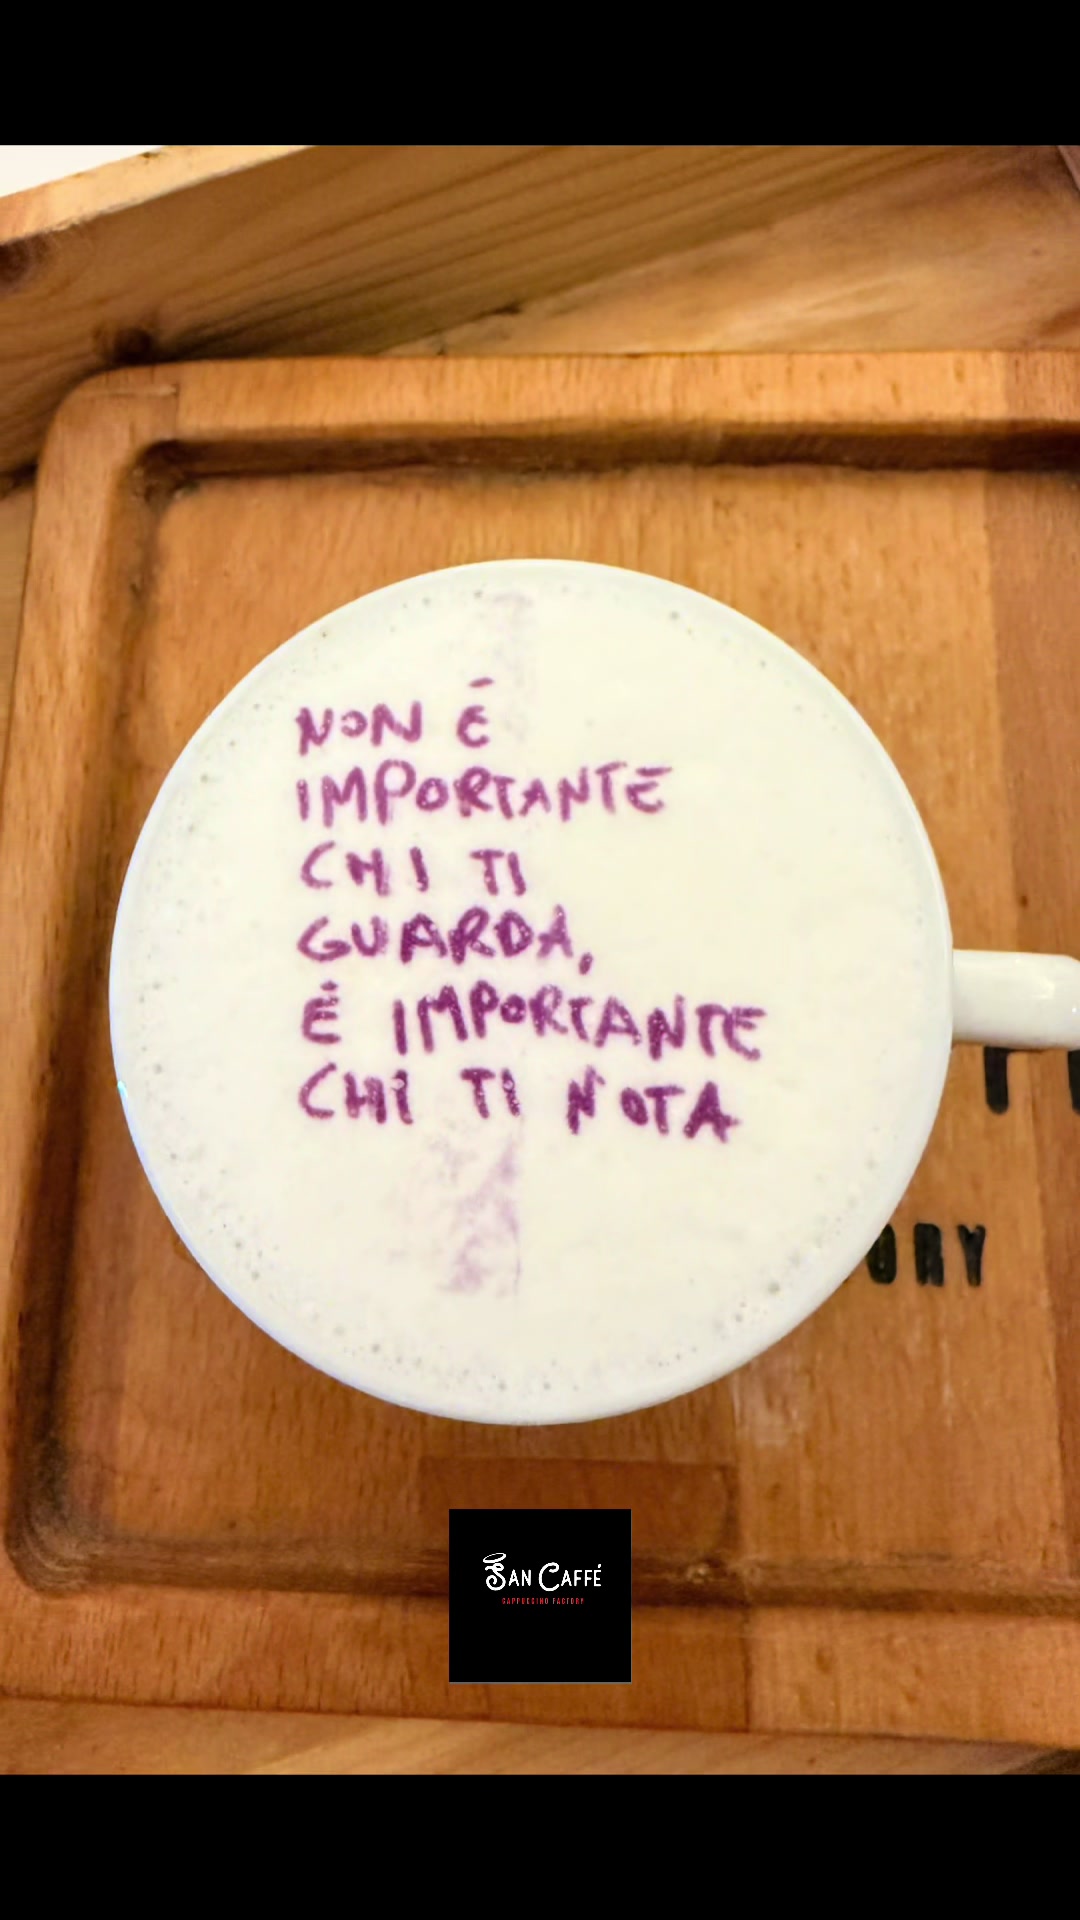 NON È
IMPORTANTE
CHI TI
GUARDA,
È IMPORTANTE
CHI TI NOTA
ORY
SAN CAFFÉ
CAPPUCCINO FACTORY